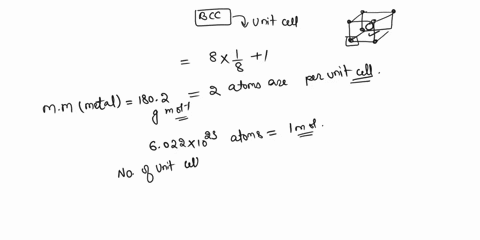 BCC
unit cell
= 8 × 1/8 + 1
M.M (metal) = 180.2 = 2 atoms are per unit cell.
g mol⁻¹
6.022×10²³ atoms = 1 mol.
No. of unit cell